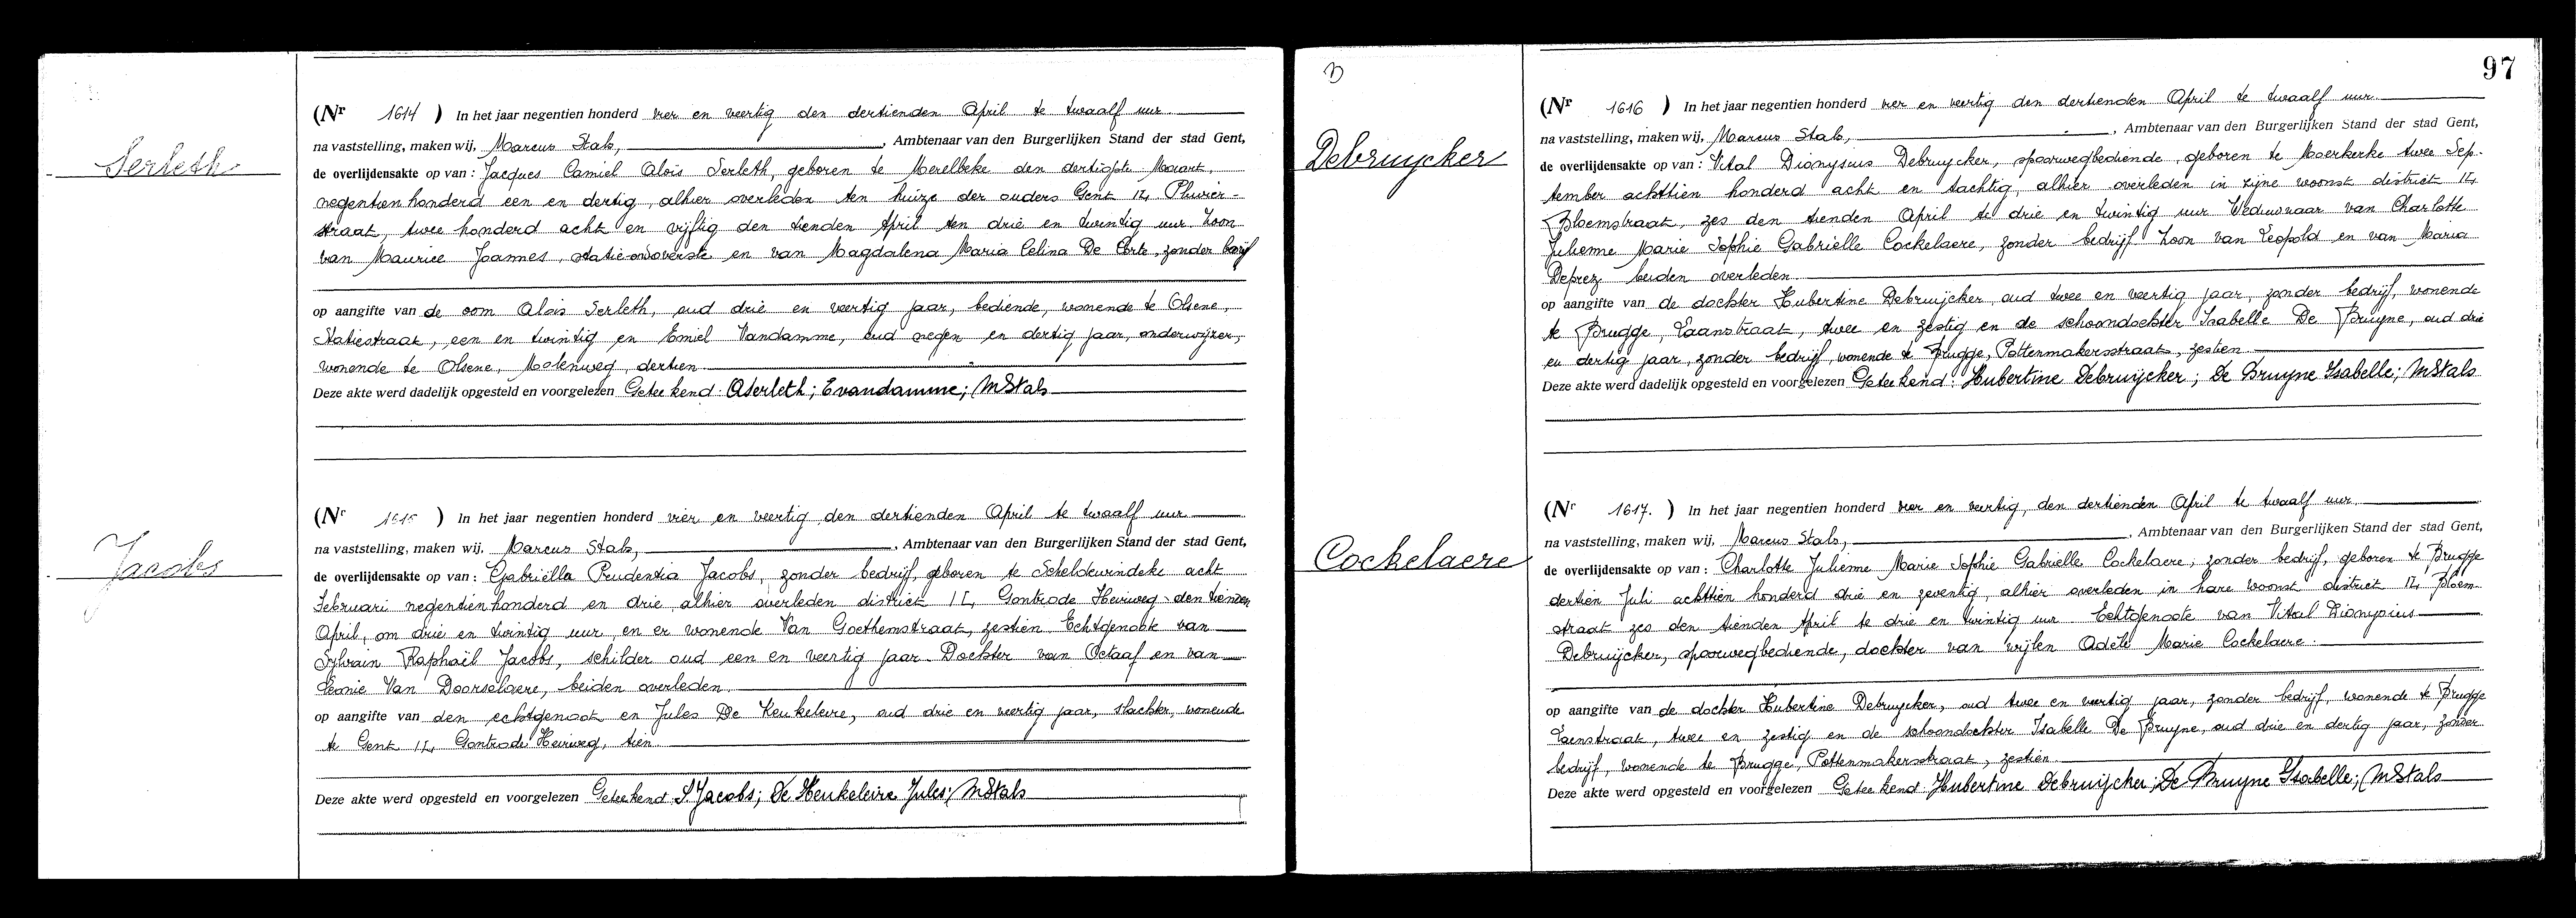 Serleth
(Nr 1614 ) In het jaar negentien honderd vier en veertig den dertienden April te twaalf uur
na vaststelling, maken wij, Marcus Stals, , Ambtenaar van den Burgerlijken Stand der stad Gent,
de overlijdensakte op van : Jacques Camiel Aloïs Serleth, geboren te Merelbeke den dertigste Maart,
negentienhonderd een en dertig, alhier overleden ten huize der ouders Gent
straat, twee honderd acht en vijftig den tienden April ten drie en twintig uur Zoon
van Maurice Joannes, statieoverste en van Magdalena Maria Celina De Corte, zonder
op aangifte van de oom Aloïs Serleth, oud drie en veertig jaar, bediende, wonende te Olsene,
Statiestraat, een en twintig en Emiel Vandamme, oud negen en dertig jaar, onderwijzer,
wonende te Olsene, Molenweg, dertien
Deze akte werd dadelijk opgesteld en voorgelezen Geteekend: ASerleth; Evandamme; MStals
Jacobs
(Nr 1615 ) In het jaar negentien honderd vier en veertig den dertienden April te twaalf uur
na vaststelling, maken wij, Marcus Stals, , Ambtenaar van den Burgerlijken Stand der stad Gent,
de overlijdensakte op van : Gabriëlla Prudentia Jacobs, zonder bedrijf, geboren te Scheldewindeke acht
Februari negentienhonderd en drie alhier overleden district Gontrode Heirweg den tienden
April, om drie en twintig uur, en er wonende Van Goethemstraat, zestien Echtgenoote van
Sylvain Raphaël Jacobs, schilder oud een en veertig jaar. Dochter van Octaaf en van
Leonie Van Doorselaere, beiden overleden.
op aangifte van den echtgenoot en Jules De Keukeleire, oud drie en veertig jaar, slachter, wonende
te Gent Gontrode Heirweg, tien
Deze akte werd opgesteld en voorgelezen Geteekend S. Jacobs; De Keukeleire Jules; MStals
97
Debruycker
(Nr 1616 ) In het jaar negentien honderd vier en veertig den dertienden April te twaalf uur
na vaststelling, maken wij, Marcus Stals, , Ambtenaar van den Burgerlijken Stand der stad Gent,
de overlijdensakte op van : Vital Dionysius Debruycker, spoorwegbediende, geboren te Moerkerke twee Sep-
tember achttien honderd acht en tachtig, alhier overleden in zijne woonst district
Bloemstraat, zes den tienden April te drie en twintig uur Weduwnaar van Charlotte
Julienne Marie Sophie Gabrielle Cockelaere, zonder bedrijf Zoon van Leopold en van Maria
Deprez beiden overleden.
op aangifte van de dochter Hubertine Debruijcker, oud twee en veertig jaar, zonder bedrijf, wonende
te Brugge, Laanstraat, twee en zestig en de schoondochter Isabelle De Bruyne, oud drie
en dertig jaar, zonder bedrijf, wonende te Brugge, Pottenmakersstraat, zestien
Deze akte werd dadelijk opgesteld en voorgelezen Geteekend: Hubertine Debruijcker; De Bruyne Isabelle; MStals
Cockelaere
(Nr 1617. ) In het jaar negentien honderd vier en veertig, den dertienden April te twaalf uur
na vaststelling, maken wij, Marcus Stals, , Ambtenaar van den Burgerlijken Stand der stad Gent,
de overlijdensakte op van : Charlotte Julienne Marie Sophie Gabrielle Cockelaere, zonder bedrijf, geboren te Brugge
dertien Juli achttien honderd drie en zeventig, alhier overleden in hare woonst district Bloem-
straat zes den tienden April te drie en twintig uur Echtgenoote van Vital Dionysius
Debruijcker, spoorwegbediende, dochter van wijlen Adèle Marie Cockelaere.
op aangifte van de dochter Hubertine Debruycker, oud twee en veertig jaar, zonder bedrijf, wonende te Brugge
Laenstraat, twee en zestig en de schoondochter Isabelle De Bruyne, oud drie en dertig jaar, zonder
bedrijf, wonende te Brugge, Pottenmakersstraat, zestien
Deze akte werd opgesteld en voorgelezen Geteekend: Hubertine Debruijcker; De Bruyne Isabelle; MStals